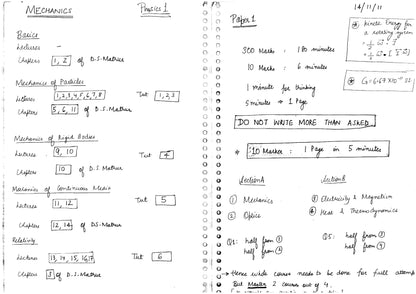 MECHANICS
Physics 1
Basics
Lectures -
Chapters 1, 2 of D.S. Mathur
Mechanics of Particles
Lectures 1,2,3,4,5,6,7,8 Tut 1,2,3
Chapters 5, 6, 11 of D.S. Mathur
Mechanics of Rigid Bodies
Lectures 9, 10 Tut 4
Chapters 10 of D.S. Mathur
Mechanics of Continuous Media
Lectures 11, 12 Tut 5
Chapters 12, 14 of DS. Mathur
Relativity
Lecture 13, 14, 15, 16, 17 Tut 6
Chapters 3 of D.S. Mathur
14/11/11
Paper 1
Kinetic Energy for
a rotating system
300 Marks : 180 minutes
10 Marks : 6 minutes
1 minute for thinking
5 minutes → 1 Page
DO NOT WRITE MORE THAN ASKED
10 Marks : 1 Page in 5 minutes
Section A
Section B
① Mechanics
② Optics
③ Electricity & Magnetism
④ Heat & Thermodynamics
Q1: half from ①
half from ②
Q5: half from ③
half from ④
→ Hence whole course needs to be done for full attempt
But Master 2 courses out of 4.